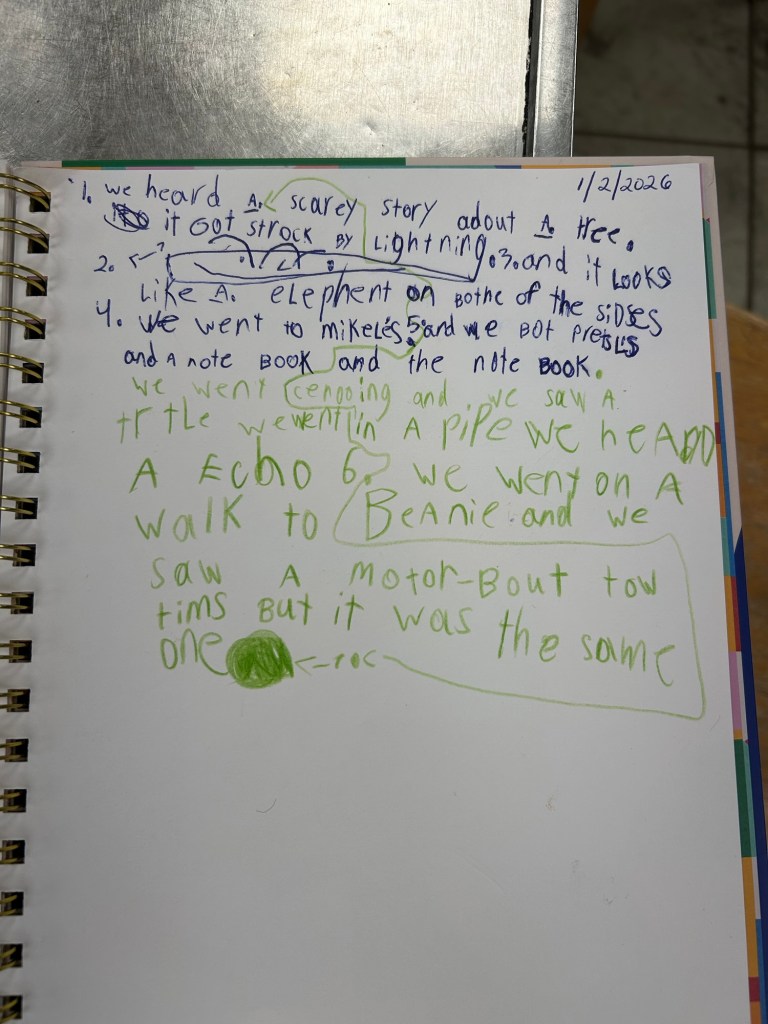 1/2/2026
1. we heard A. scarey story adout A tree.
it Got strock BY Lightning
2. .3. and it Looks
Like A. elephent on Bothe of the sidses
4. We went to mikeles 5. and we Bot pretsLs
and A note BOOK and the note BOOK.
we went cenooing and we saw A
trtle we went in A pipe we heARD
A Echo 6. we went on A
walk to BeAnie and we
saw A motor-Bout tow
tims But it was the same
one